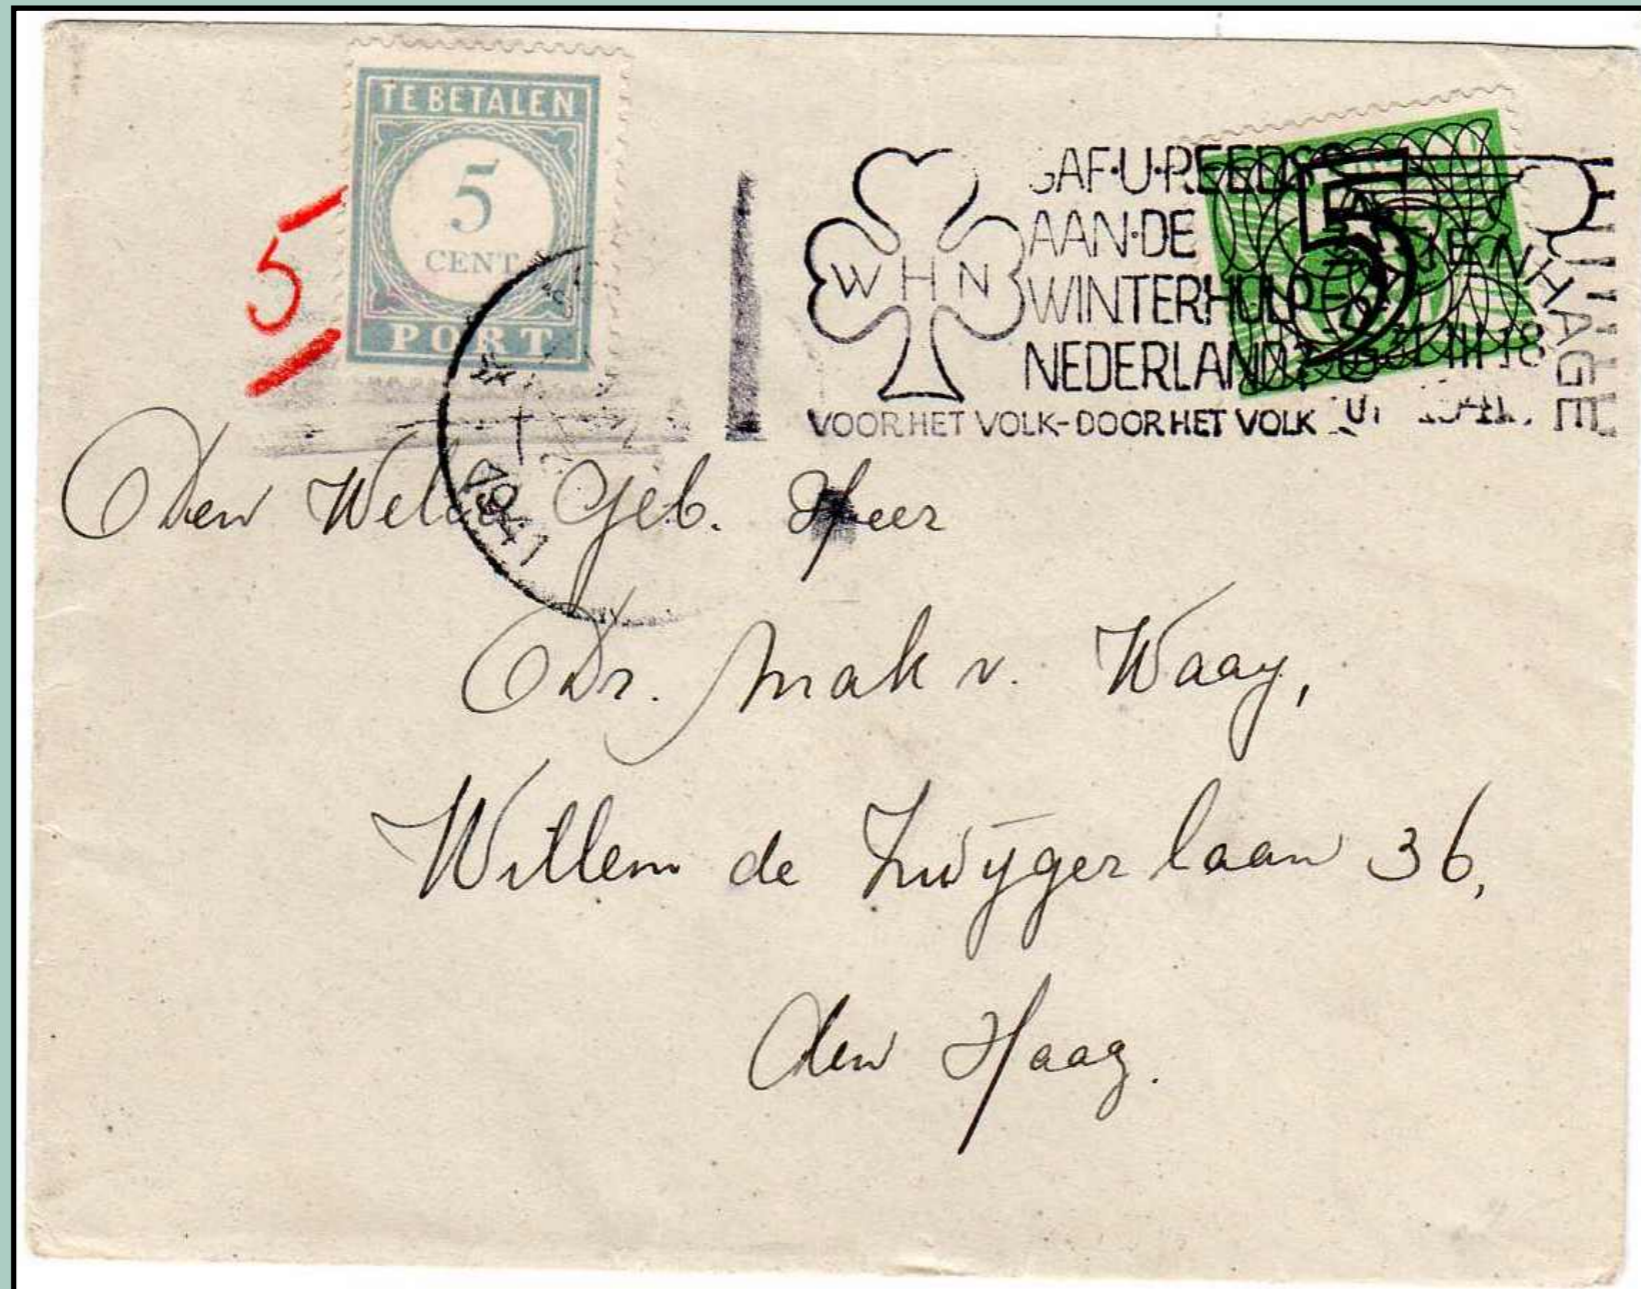 TE BETALEN
5
CENT
PORT
5
WHN
GAF·U·REEDS
AAN·DE
WINTERHULP
NEDERLAND?
VOOR HET VOLK-DOOR HET VOLK
5
GRAVENHAGE
31 III 18
1941
1941
Den Weled. Geb. Heer
Dr. Mak v. Waay,
Willem de Zwijgerlaan 36,
den Haag.